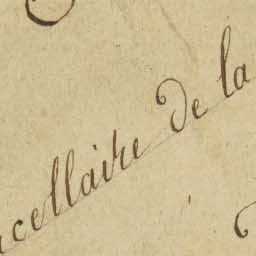 ncellaire de la